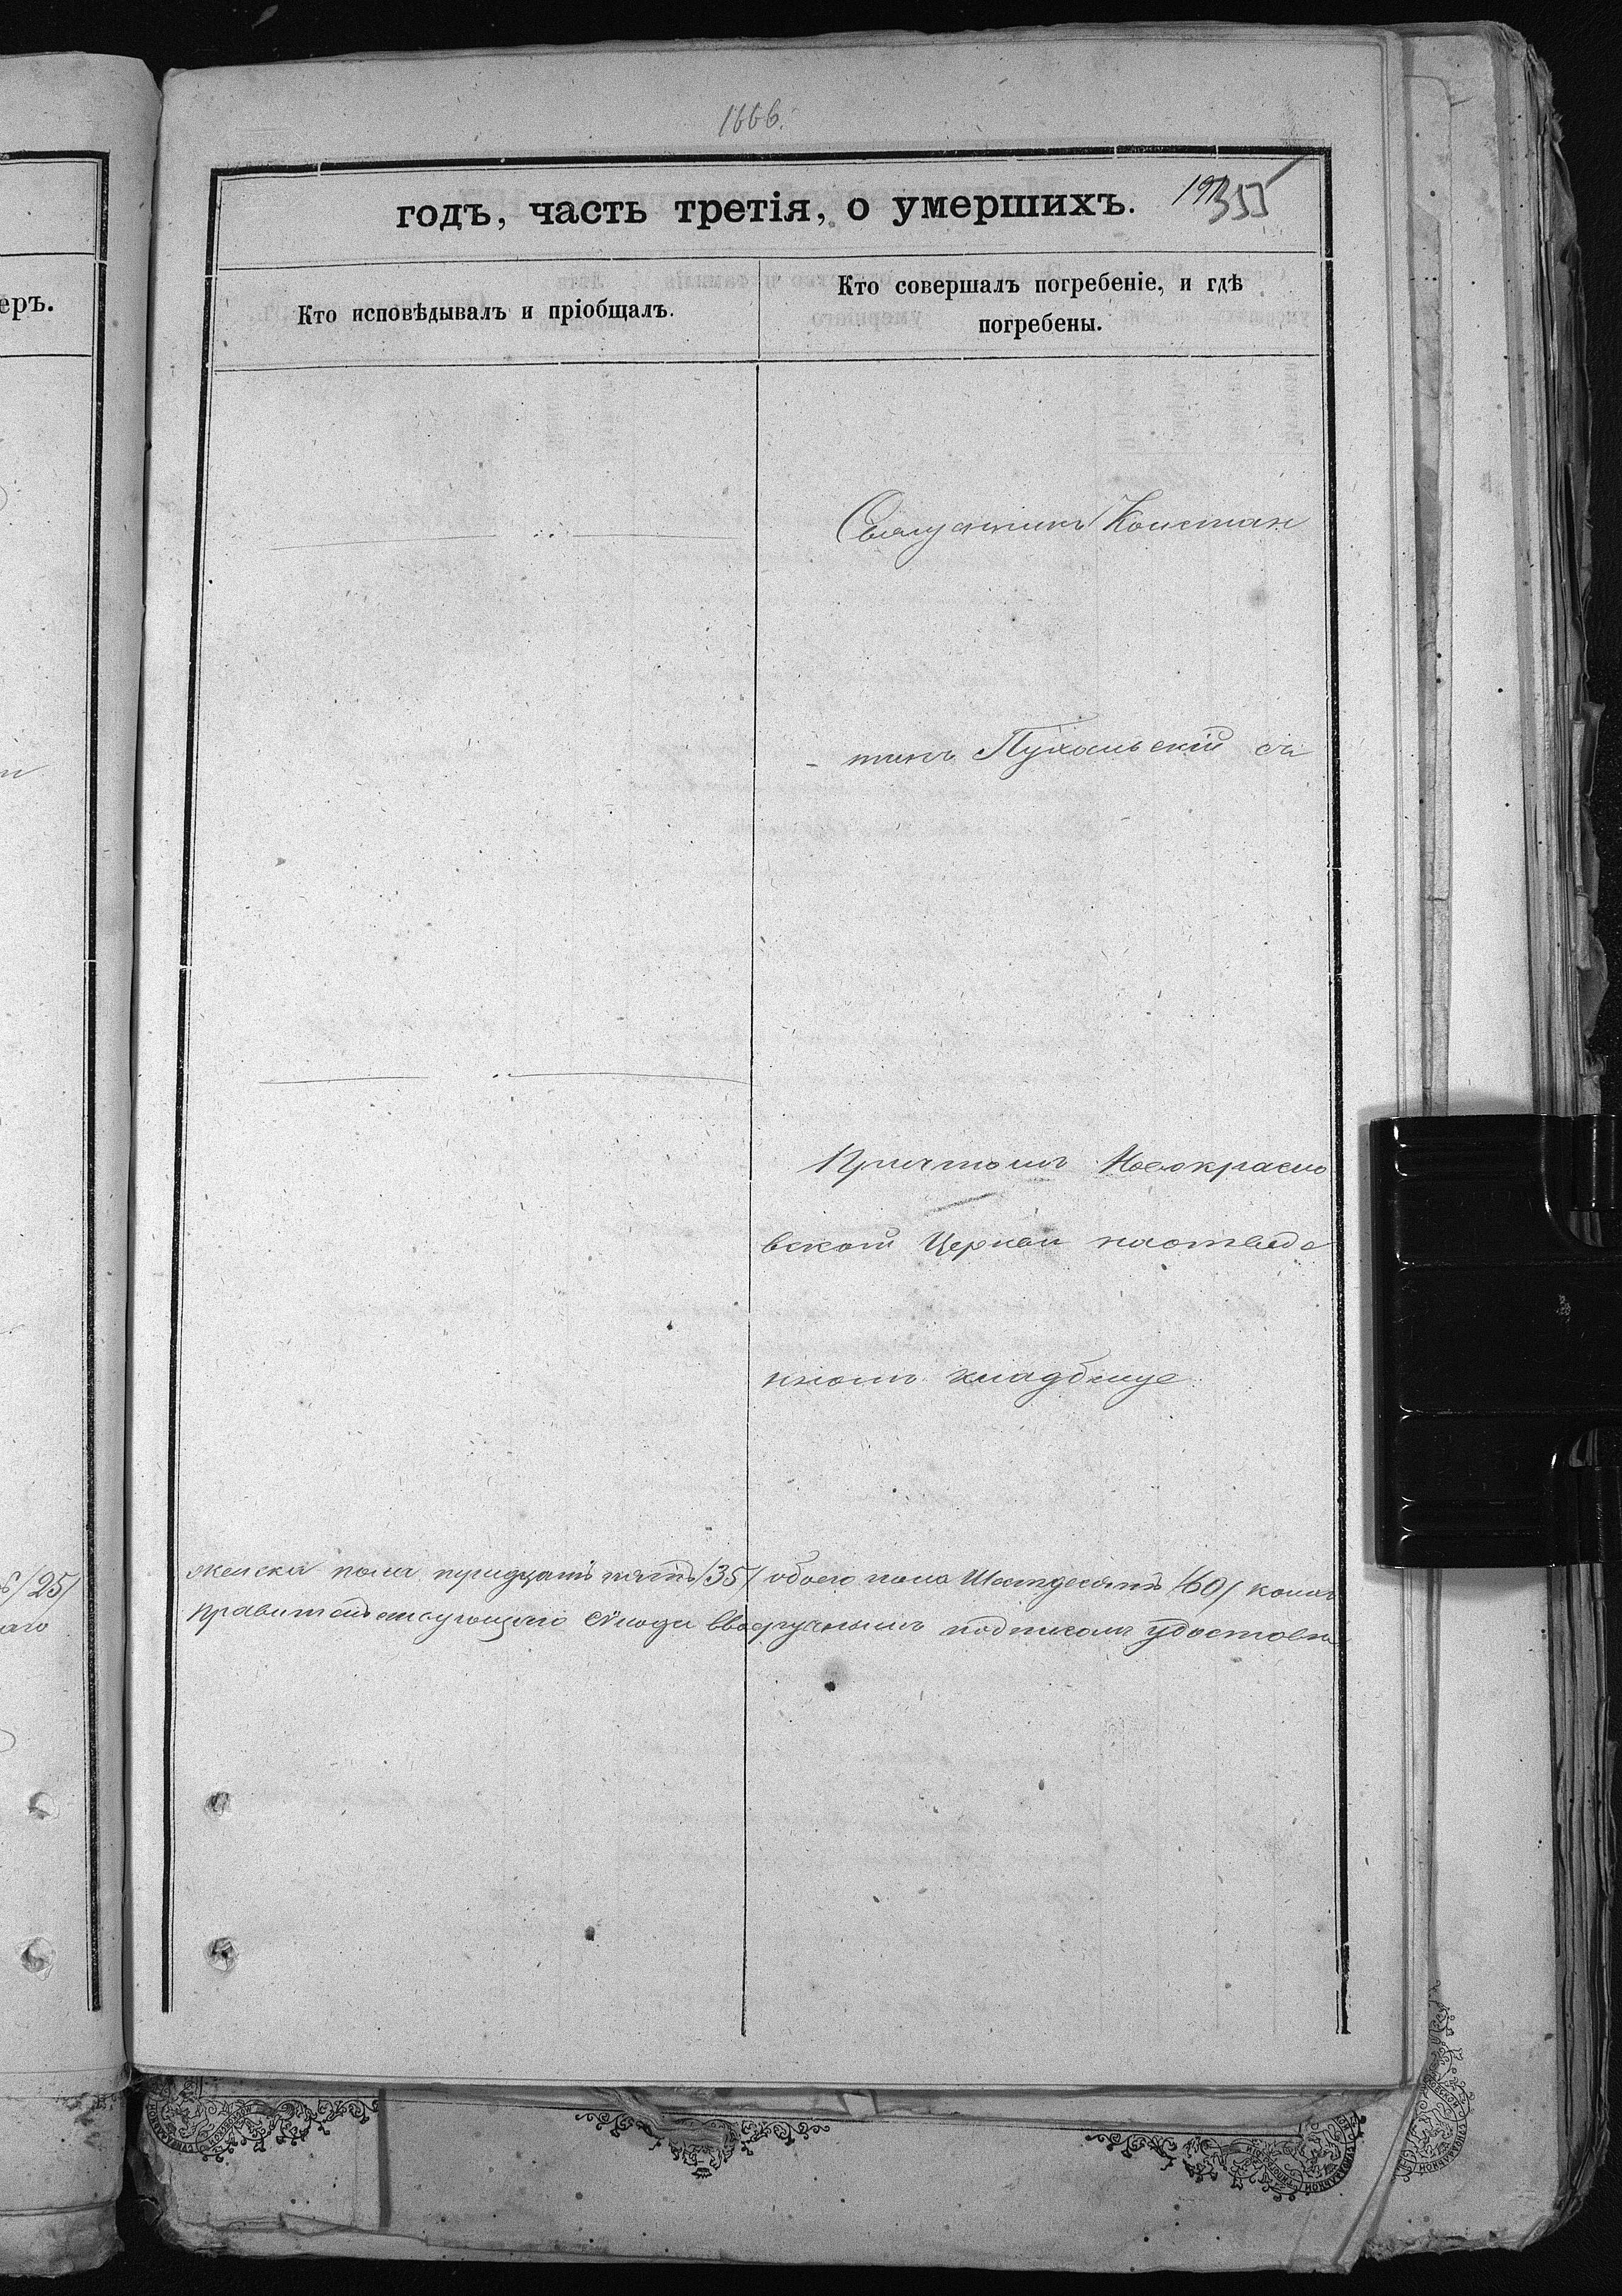 1666.
годъ, часть третія, о умершихъ.
355
еръ.
Кто исповѣдывалъ и пріобщалъ.
Кто совершалъ погребеніе, и гдѣ
погребены.
Священникъ Констан
тинъ Пухальскій съ
Причтомъ Новокрасно
вской Церкви наотведе
нномъ кладбище
/25/
женска пола тридцать пять /35/ обоего пола Шестдесятъ /60/
Правительствующаго Сѵнода подписомъ удостовѣ